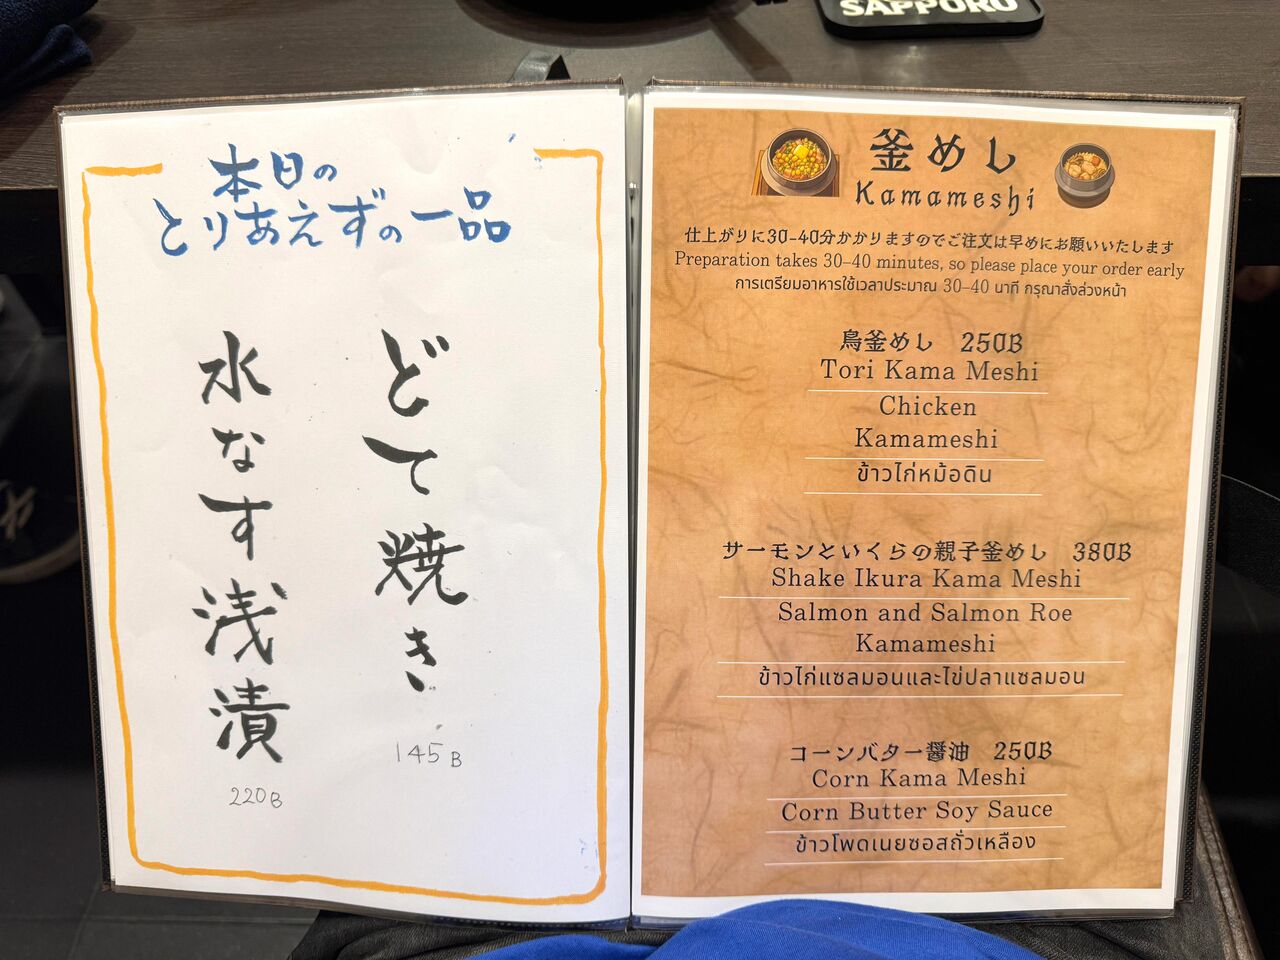 SAPPORO
本日の
とりあえずの一品
どて焼き
145B
水なす浅漬
220B
釜めし
Kamameshi
仕上がりに30-40分かかりますのでご注文は早めにお願いいたします
Preparation takes 30–40 minutes, so please place your order early
การเตรียมอาหารใช้เวลาประมาณ 30–40 นาที กรุณาสั่งล่วงหน้า
鳥釜めし 250B
Tori Kama Meshi
Chicken
Kamameshi
ข้าวไก่หม้อดิน
サーモンといくらの親子釜めし 380B
Shake Ikura Kama Meshi
Salmon and Salmon Roe
Kamameshi
ข้าวไก่แซลมอนและไข่ปลาแซลมอน
コーンバター醤油 250B
Corn Kama Meshi
Corn Butter Soy Sauce
ข้าวโพดเนยซอสถั่วเหลือง